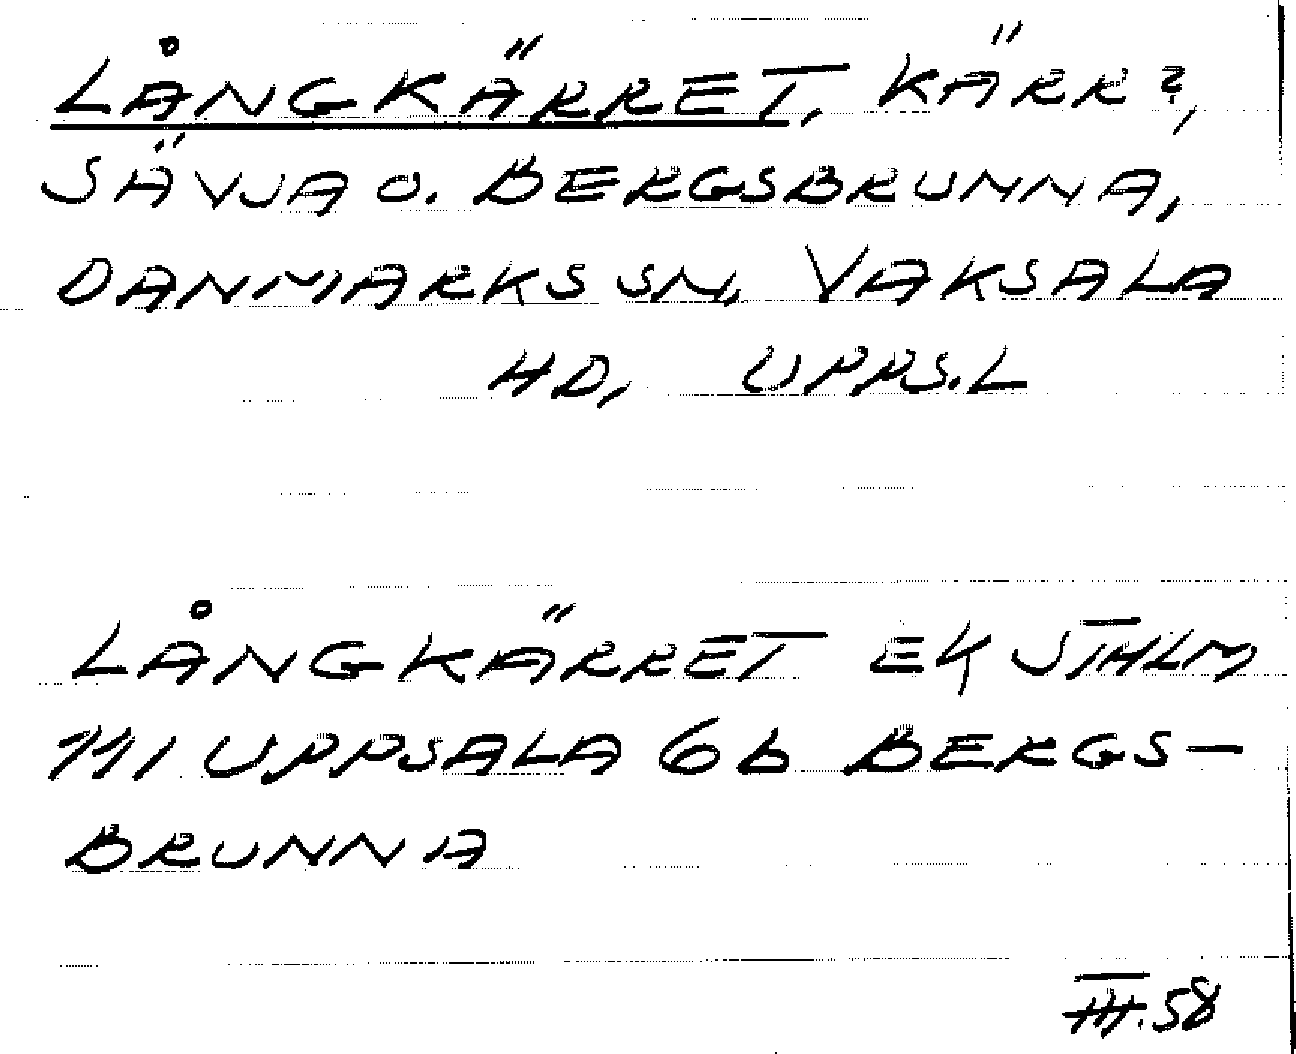 LÅNGKÄRRET, KÄRR?,
SÄVJA O. BERGSBRUNNA,
DANMARKS SN, VAKSALA
HD, UPPS.L
LÅNGKÄRRET EK STHLM
111 UPPSALA 6b BERGS-
BRUNNA
III.58